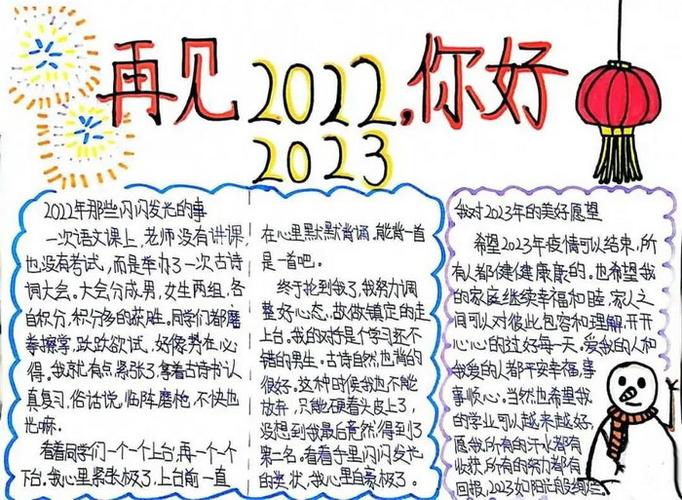 再见2022,你好
2023
2022年那些闪闪发光的事
一次语文课上,老师没有讲课,
也没有考试,而是举办了一次古诗
词大会。大会分成男,女生两组,各
自积分,积分多的获胜。同学们都磨
拳擦掌,跃跃欲试,好像势在必
得。我就有点紧张了,拿着古诗书认
真复习,俗话说,临阵磨枪,不快也
光嘛。
看着同学们一个一个上台,再一个一个
下台,我心里紧张极了,上台前一直
在心里默默背诵,能背一首
是一首吧。
终于轮到我了,我努力调
整好心态,故做镇定的走
上台。我的对手是个学习还不
错的男生。古诗自然也背的
很好。这种时候我也不能
放弃,只能硬着头皮上了,
没想到我最后竟然得到了
第一名。看着手里闪闪发光
的奖状,我心里自豪极了。
我对2023年的美好愿望
希望2023年疫情可以结束,所
有人都健健康康的。也希望我
的家庭继续幸福和睦,家人之
间可以对彼此包容和理解,开开
心心的过好每一天。爱我的人和
我爱的人都平安幸福,事
事顺心。当然也希望我
的学业可以越来越好,
愿我所有的汗水都有
收获,所有的努力都有
回报。2023如阳光般绚烂